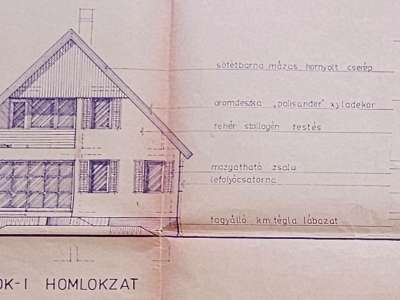 sötétbarna mázas hornyolt cserép
oromdeszka „palisander" xyladekor
fehér stollagén festés
mozgatható zsalu
lefolyócsatorna
fagyálló km.tégla lábazat
OK-I HOMLOKZAT